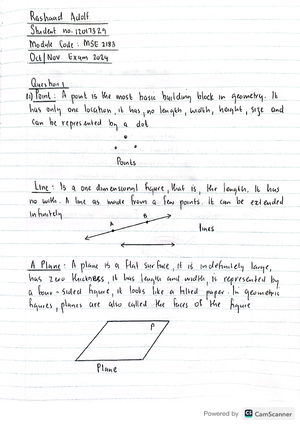 Rashaad Adolf
Student no. 12017329
Module Code : MSE 2183
Oct/Nov Exam 2024
Question 1
1.1) Point : A point is the most basic building block in geometry. It
has only one location, it has, no length, width, height, size and
can be represented by a dot
Points
Line : Is a one dimensional figure, that is, the length. It has
no with. A line as made from a few points. it can be extended
infinitely
A
B
lines
A Plane : A plane is a flat surface, it is indefinitely large,
has zero thickness, it has length and width, is represented by
a four-sided figure, it looks like a tilted paper. In geometric
figures, planes are also called the faces of the figure
P
Plane
Powered by CS CamScanner